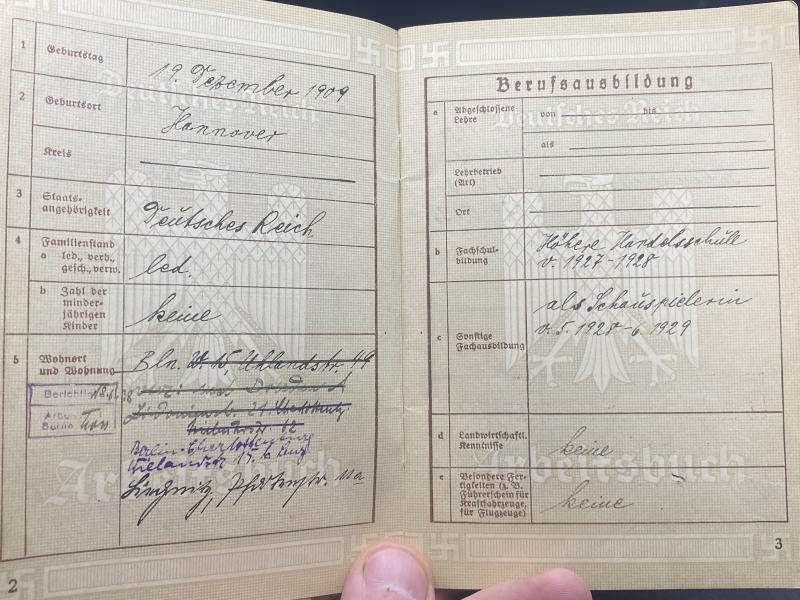 1 Geburtstag 19. Dezember 1909
2 Geburtsort Hannover
Kreis
3 Staats-
angehörigkeit Deutsches Reich
4 Familienstand
a led., verh.,
gesch., verw. led.
b Zahl der
minder-
jährigen
Kinder keine
5 Wohnort
und Wohnung Bln. W. 15, Uhlandstr. 49
Berichtigt
Berlin
Berlin-Charlottenburg
Wielandstr. 15
Liegnitz, 11a
2
Deutsches Reich
Arbeitsbuch
Berufsausbildung
a Abgeschlossene
Lehre von bis
als
Lehrbetrieb
(Art)
Ort
b Fachschul-
bildung Höhere Handelsschule
v. 1927-1928
c Sonstige
Fachausbildung als Schauspielerin
v. 5. 1928-6. 1929
d Landwirtschaftl.
Kenntnisse keine
e Besondere Fer-
tigkeiten (z. B.
Führerschein für
Kraftfahrzeuge,
für Flugzeuge) keine
3
Deutsches Reich
Arbeitsbuch